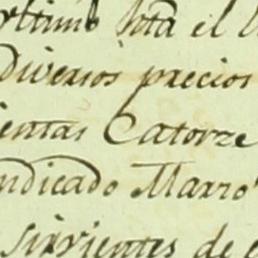 vltimo Jota el
diversos precios
ientas Catorze
ndicado Marro
sirvientes de